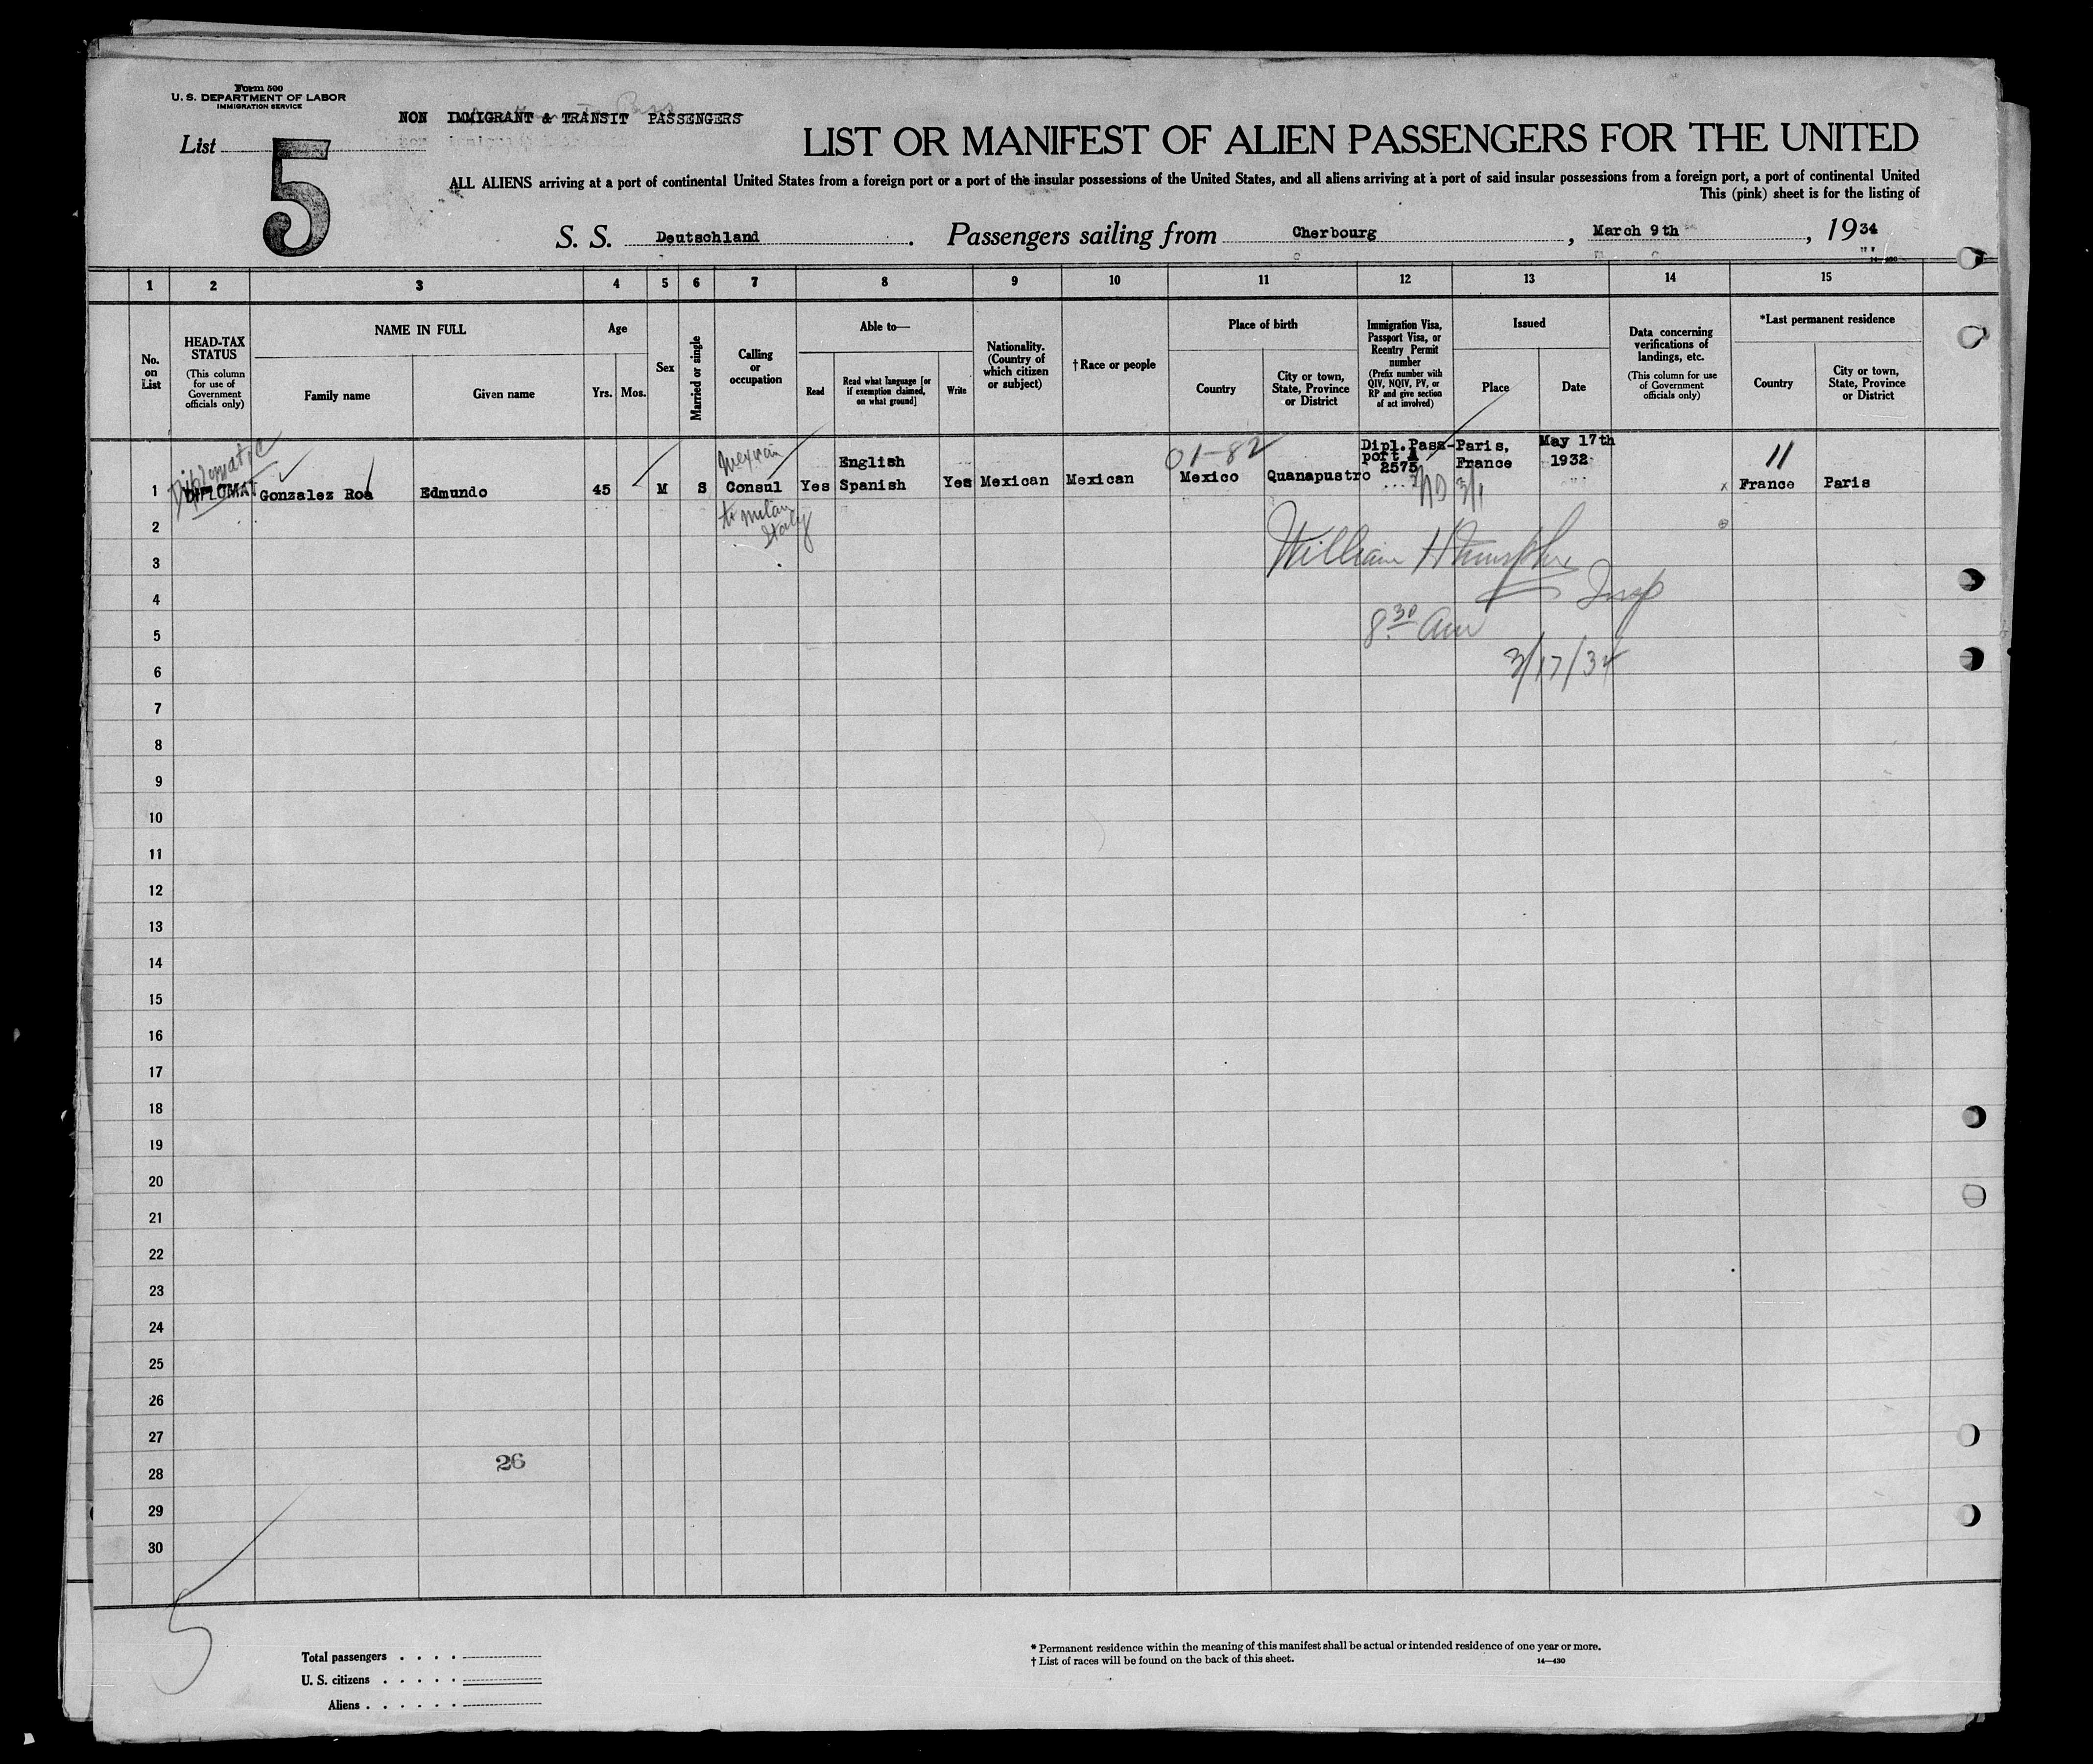 Form 500
U. S. DEPARTMENT OF LABOR
IMMIGRATION SERVICE
NON IMMIGRANT & TRANSIT PASSENGERS
List 5
LIST OR MANIFEST OF ALIEN PASSENGERS FOR THE UNITED
ALL ALIENS arriving at a port of continental United States from a foreign port or a port of the insular possessions of the United States, and all aliens arriving at a port of said insular possessions from a foreign port, a port of continental United
This (pink) sheet is for the listing of
S. S. Deutschland. Passengers sailing from Cherbourg, March 9th, 1934
1 2 3 4 5 6 7 8 9 10 11 12 13 14 15
No. on List
HEAD-TAX STATUS
(This column for use of Government officials only)
NAME IN FULL
Family name
Given name
Age
Yrs. Mos.
Sex
Married or single
Calling or occupation
Able to—
Read
Read what language [or if exemption claimed, on what ground]
Write
Nationality. (Country of which citizen or subject)
†Race or people
Place of birth
Country
City or town, State, Province or District
Immigration Visa, Passport Visa, or Reentry Permit number
(Prefix number with QIV, NQIV, PV, or RP and give section of act involved)
Issued
Place
Date
Data concerning verifications of landings, etc.
(This column for use of Government officials only)
*Last permanent residence
Country
City or town, State, Province or District
Diplomatic
1 DIPLOMAT Gonzalez Roa Edmundo 45 M S Mexican Consul Yes English Spanish Yes Mexican Mexican 01-82 Mexico Quanapustro Dipl. Pass- port A 2575 Paris, France May 17th 1932 11 France Paris
to Milan Italy
ND 3/1
2
William H
3
4
Insp
5
8 30 am
6
3/17/34
7
8
9
10
11
12
13
14
15
16
17
18
19
20
21
22
23
24
25
26
27
26
28
29
30
5
Total passengers
U. S. citizens
Aliens
* Permanent residence within the meaning of this manifest shall be actual or intended residence of one year or more.
† List of races will be found on the back of this sheet.
14—430